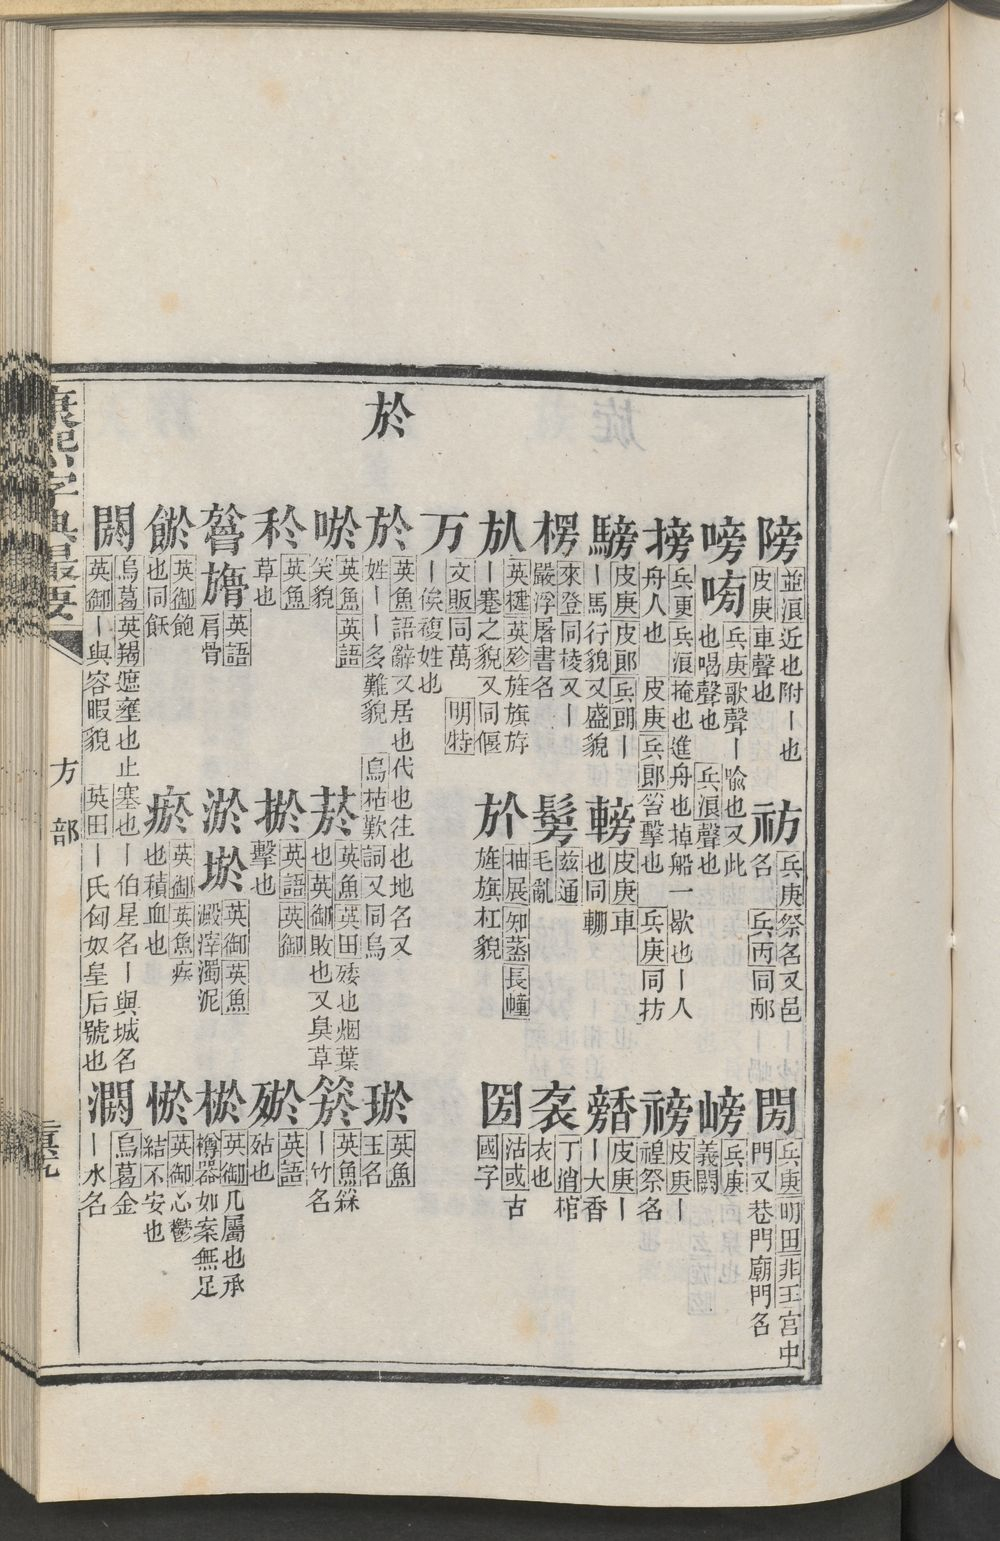 隌 並浪近也附丨也皮庚車聲也
祊 兵庚祭名又邑名兵丙同邴
閍 兵庚明田非王宮中門又巷門廟門名
嗙 兵庚歌聲丨喩也又此也喝聲也兵浪聲也
嵭 兵庚義闕
搒 兵更兵浪掩也進舟也掉船一歇也丨人舟人也皮庚兵郎笞擊也兵庚同㧍
禞 皮庚丨禋祭名
騯 皮庚皮郎兵頭丨丨馬行貌又盛貌
輬 皮庚車也同輣
馞 皮庚丨丨大香
楞 來登同棱又丨嚴浮屠書名
髣 茲通毛亂
㐮 丁消棺衣也
㫃 英㨷英㱽旌旗斿丨蹇之貌又同偃
抽展知蒸長幢旌旗杠貌
圀 沽或古國字
万 文販同萬明特丨俟複姓也
於
於 英魚語辭又居也代也往也地名又姓丨丨多難貌烏枯歎詞又同烏
英魚玉名
唹 英魚英語笑貌
菸 英魚英田矮也烟葉也英御敗也又臭草
箊 英魚箖丨竹名
英魚草也
㧊 英語英御擊也
英語㱠也
英語肩骨
淤 英御英魚澱滓濁泥
棜 英御几屬也承樽器如案無足
飫 英御飽也同飫
瘀 英御英魚疾也積血也
悇 英御心鬱結不安也
閼 烏葛英羯遮壅也止塞也丨伯星名丨與城名英御丨與容暇貌英田丨氏匈奴皇后號也
烏葛金丨水名
康熙字典最要
方部